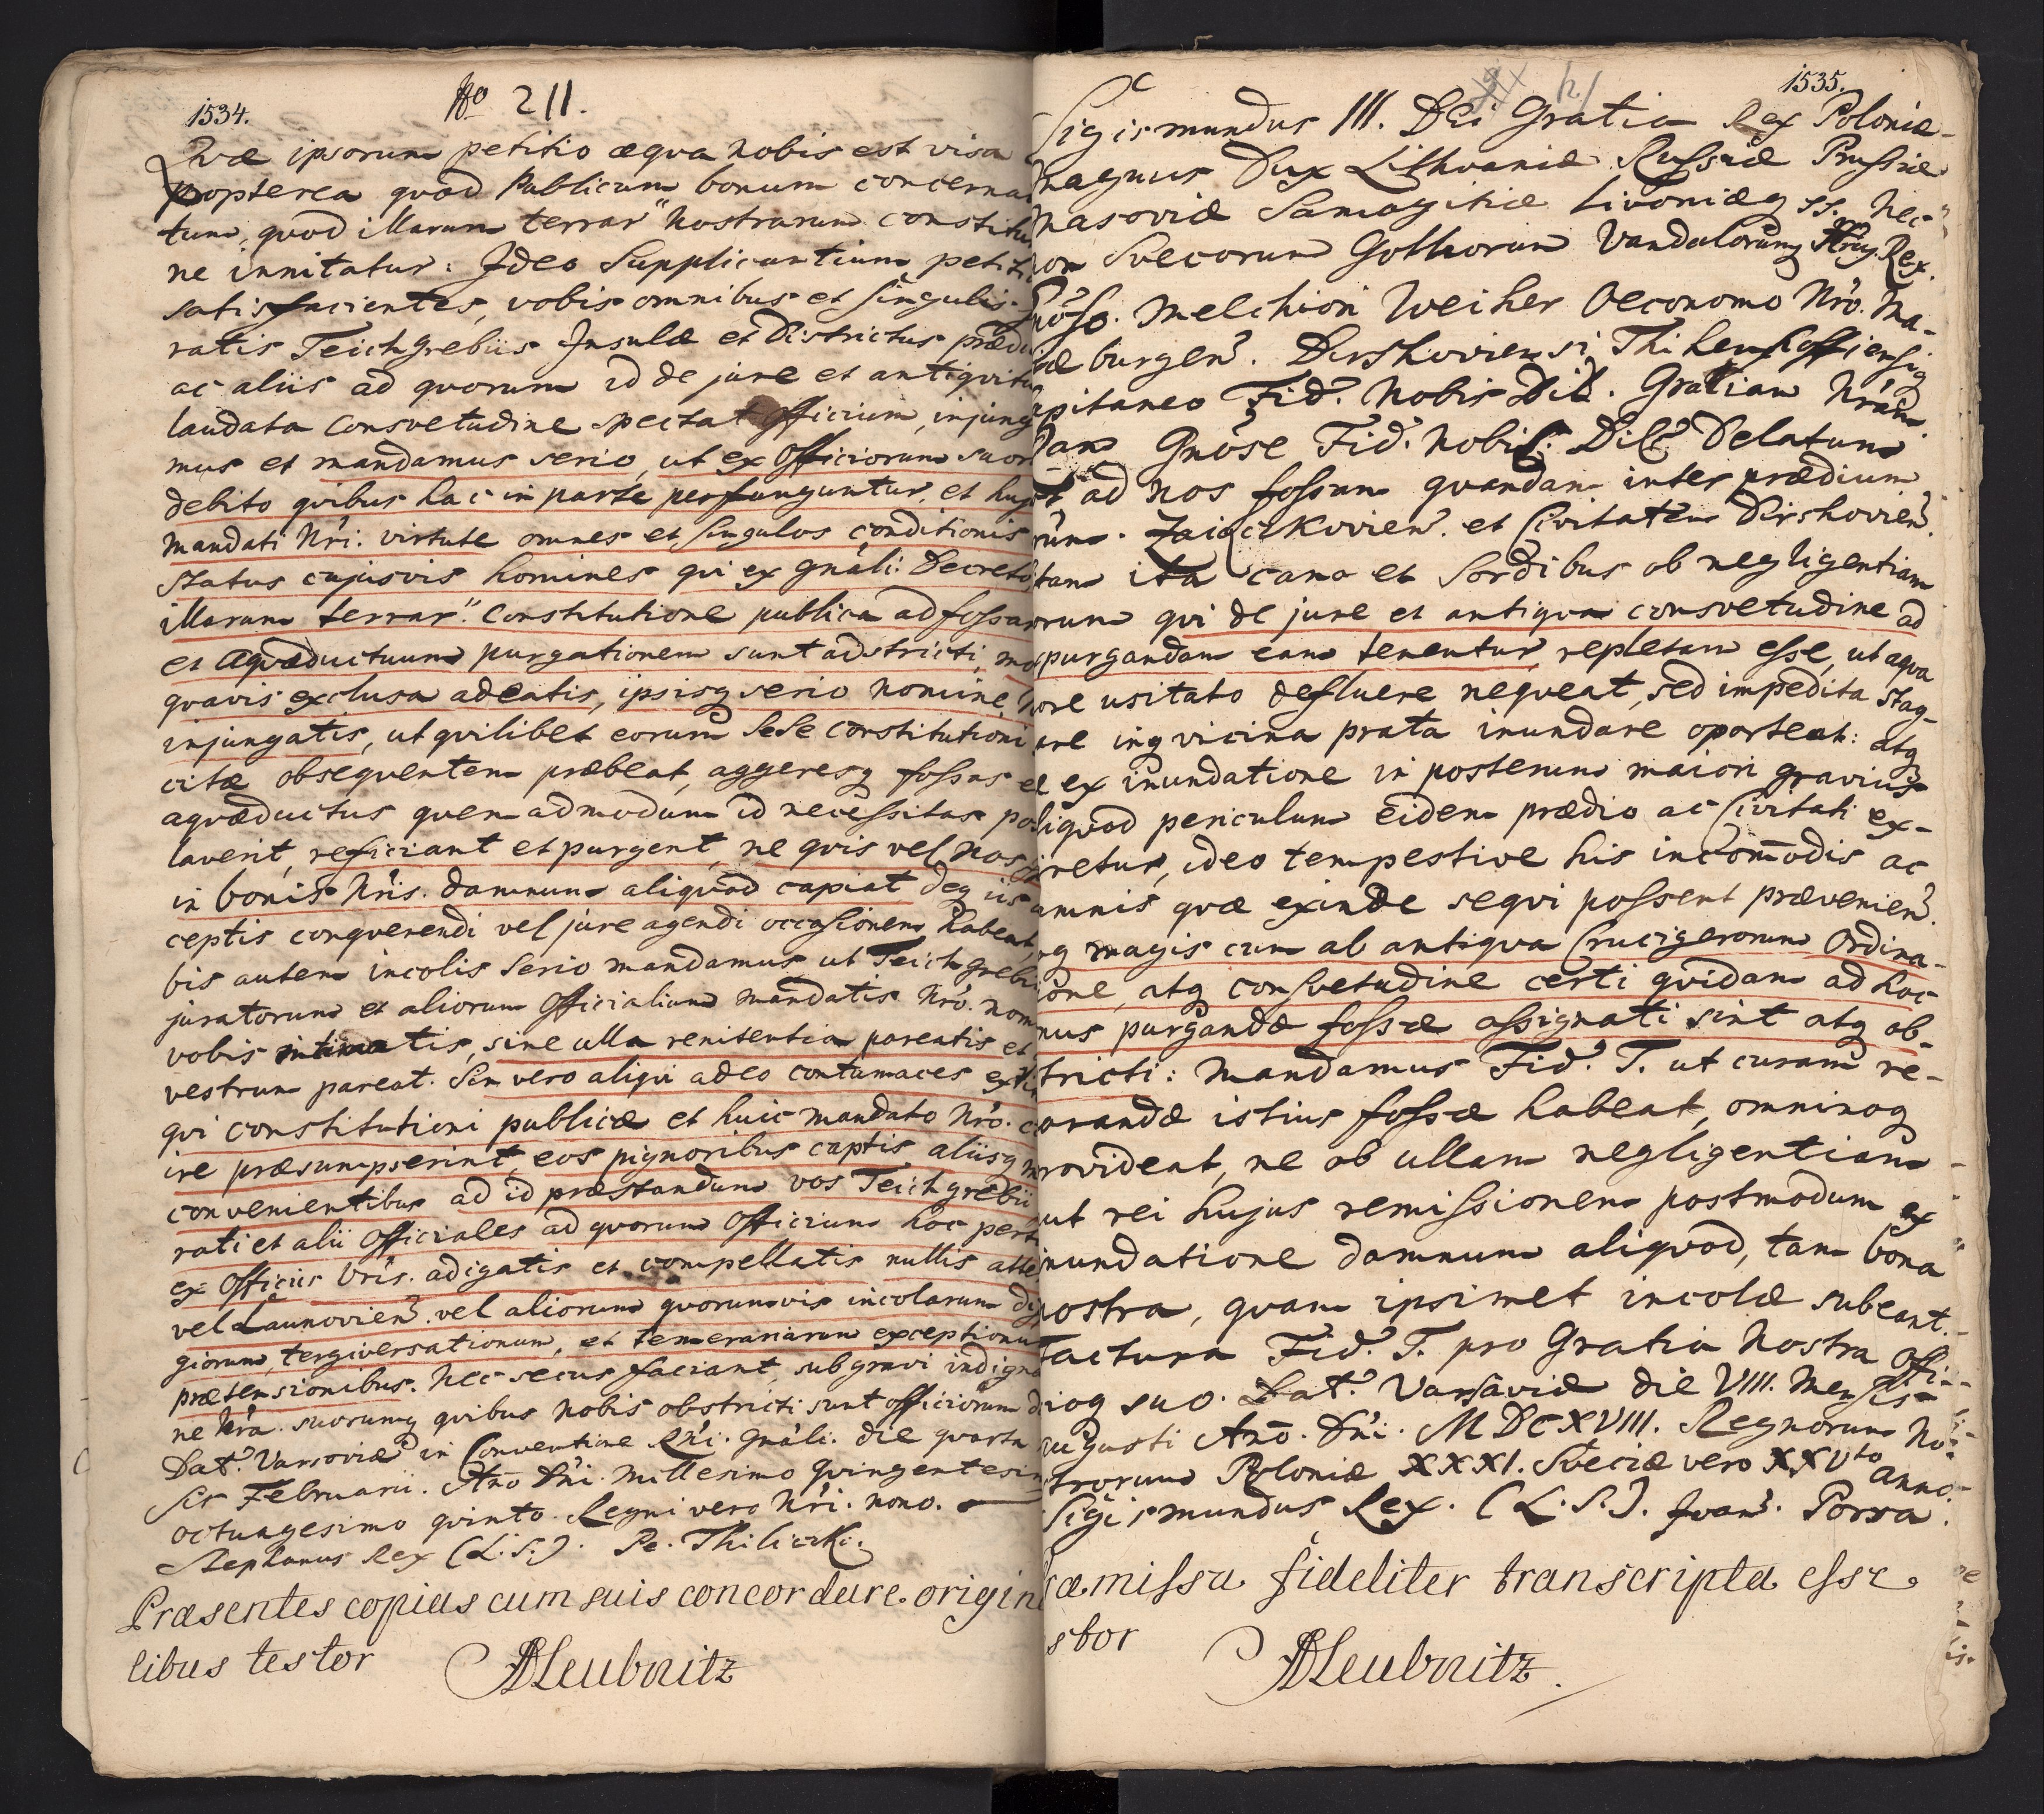 1534.
No 211.
Quæ ipsorum petitio æqua nobis est visa
propterea quod Publicum bonum concerna
tum, quod illarum terrar" nostrarum constitu
ne innitatur: Ideo Supplicantium petiti
satisfacientes, vobis omnibus et singulis
ratis Teichgrebiis Insulæ et Districtus præd
ac aliis ad quorum id de jure et antiquitu
laudata consvetudine spectat officium, injung
mus et mandamus serio, ut ex Officiorum suor
debito quibus hac in parte perfunguntur, et huj
mandati Nri. virtute omnes et singulos conditionis
status cujusvis homines qui ex gnáli: Decreto
illarum terrar". Constitutione publica ad fossar
et Aquæductuum purgationem sunt adstricti, mo
quavis exclusa adeatis, ipsisq serio nomine N
injungatis, ut quilibet eorum sese constitutioni
citæ obsequentem præbeat, aggeresq fossas e
aquæductus quemadmodum id necessitas pos
laverit, reficiant et purgent, ne quis vel nos
in bonis Nris. damnum aliquod capiat deq iis
ceptis conquerendi vel jure agendi occasionem habeat,
bis autem incolis serio mandamus ut Teichgrebi
juratorum et aliorum Officialium mandatis Nro. nom
vobis intimatis, sine ulla renitentia pareatis et
vestrum pareat. Sin vero aliqui adeo contumaces exti
qui constitutioni publicæ et huic mandato Nro. c
ire præsumpserint, eos pignoribus captis aliisq m
convenientibus ad id præstandum vos Teichgrebii
rati et alii Officiales ad quorum Officium hoc pert
ex Officiis Vris. adigatis et compellatis nullis atte
vel Launovien. vel aliorum quorumvis incolarum di
giorum, tergiversationum, et temerariarum exceptionu
prætensionibus. Nec secus faciant, sub gravi indigna
ne Nra. suorumq quibus nobis obstricti sunt officiorum d
Dat. Varsoviæ in Conventione Rni. Gnáli. die quarta
sis Februarii. Ano Dni. Millesimo quingentesim
octuagesimo quinto. Regni vero Nri. nono.
Stephanus Rex (L.S.). Pe. Thiliczki.
Præsentes copias cum suis concordare origin
libus testor
Leubnitz
1535.
h.
Sigismundus III. Dei Gratia Rex Poloniæ
Magnus Dux Lithvaniæ Russiæ Prussiæ
Masoviæ Samogitiæ Livoniæq ss. nec
non Svecorum Gothorum Vandalorumq Rex.
Gnoso. Melchiori Weiher Oeconomo Nro. Ma-
burgen. Dirshoviensi
apitaneo Fid. Nobis Dil. Gratiam Nram
Gnose Fid. Nobis. Dile Delatum
ad nos fossam quandam inter prædium
rum. Zaiączkovien. et Civitatem Dirshovien.
tam ita cæno et sordibus ob negligentiam
rum qui de jure et antiqua consvetudine ad
purgandam eam tenentur repletam esse, ut aqua
ore usitato defluere nequeat, sed impedita stag-
are inq vicina prata inundare oporteat: atq
ex inundatione in posterum maiori gravius
liquod periculum eidem prædio ac Civitati ex-
retur, ideo tempestive his incommodis ac
amnis quæ exinde sequi possent prævenien.
q magis cum ab antiqua Crucigerorum Ordina-
ione, atq consvetudine certi quidam ad hoc
nus purgandæ fossæ assignati sint atq ob-
tricti: Mandamus Fid. T. ut curam re-
arandæ istius fossæ habeat, omninoq
rovideat, ne ob ullam negligentiam
ut rei hujus remissionem postmodum ex
nundatione damnum aliquod, tam bona
ostra, quam ipsimet incolæ subeant.
actura Fid. T. pro Gratia Nostra Offi-
ioq suo. Dat. Varsaviæ die VIII. Mensis
ugusti Ano. Dni. MDCXVIII. Regnorum No-
trorum Poloniæ XXXI. Sveciæ vero XXVto anno.
Sigismundus Rex. (L.S.). Porra.
æmissa fideliter transcripta esse
stor
Leubnitz.